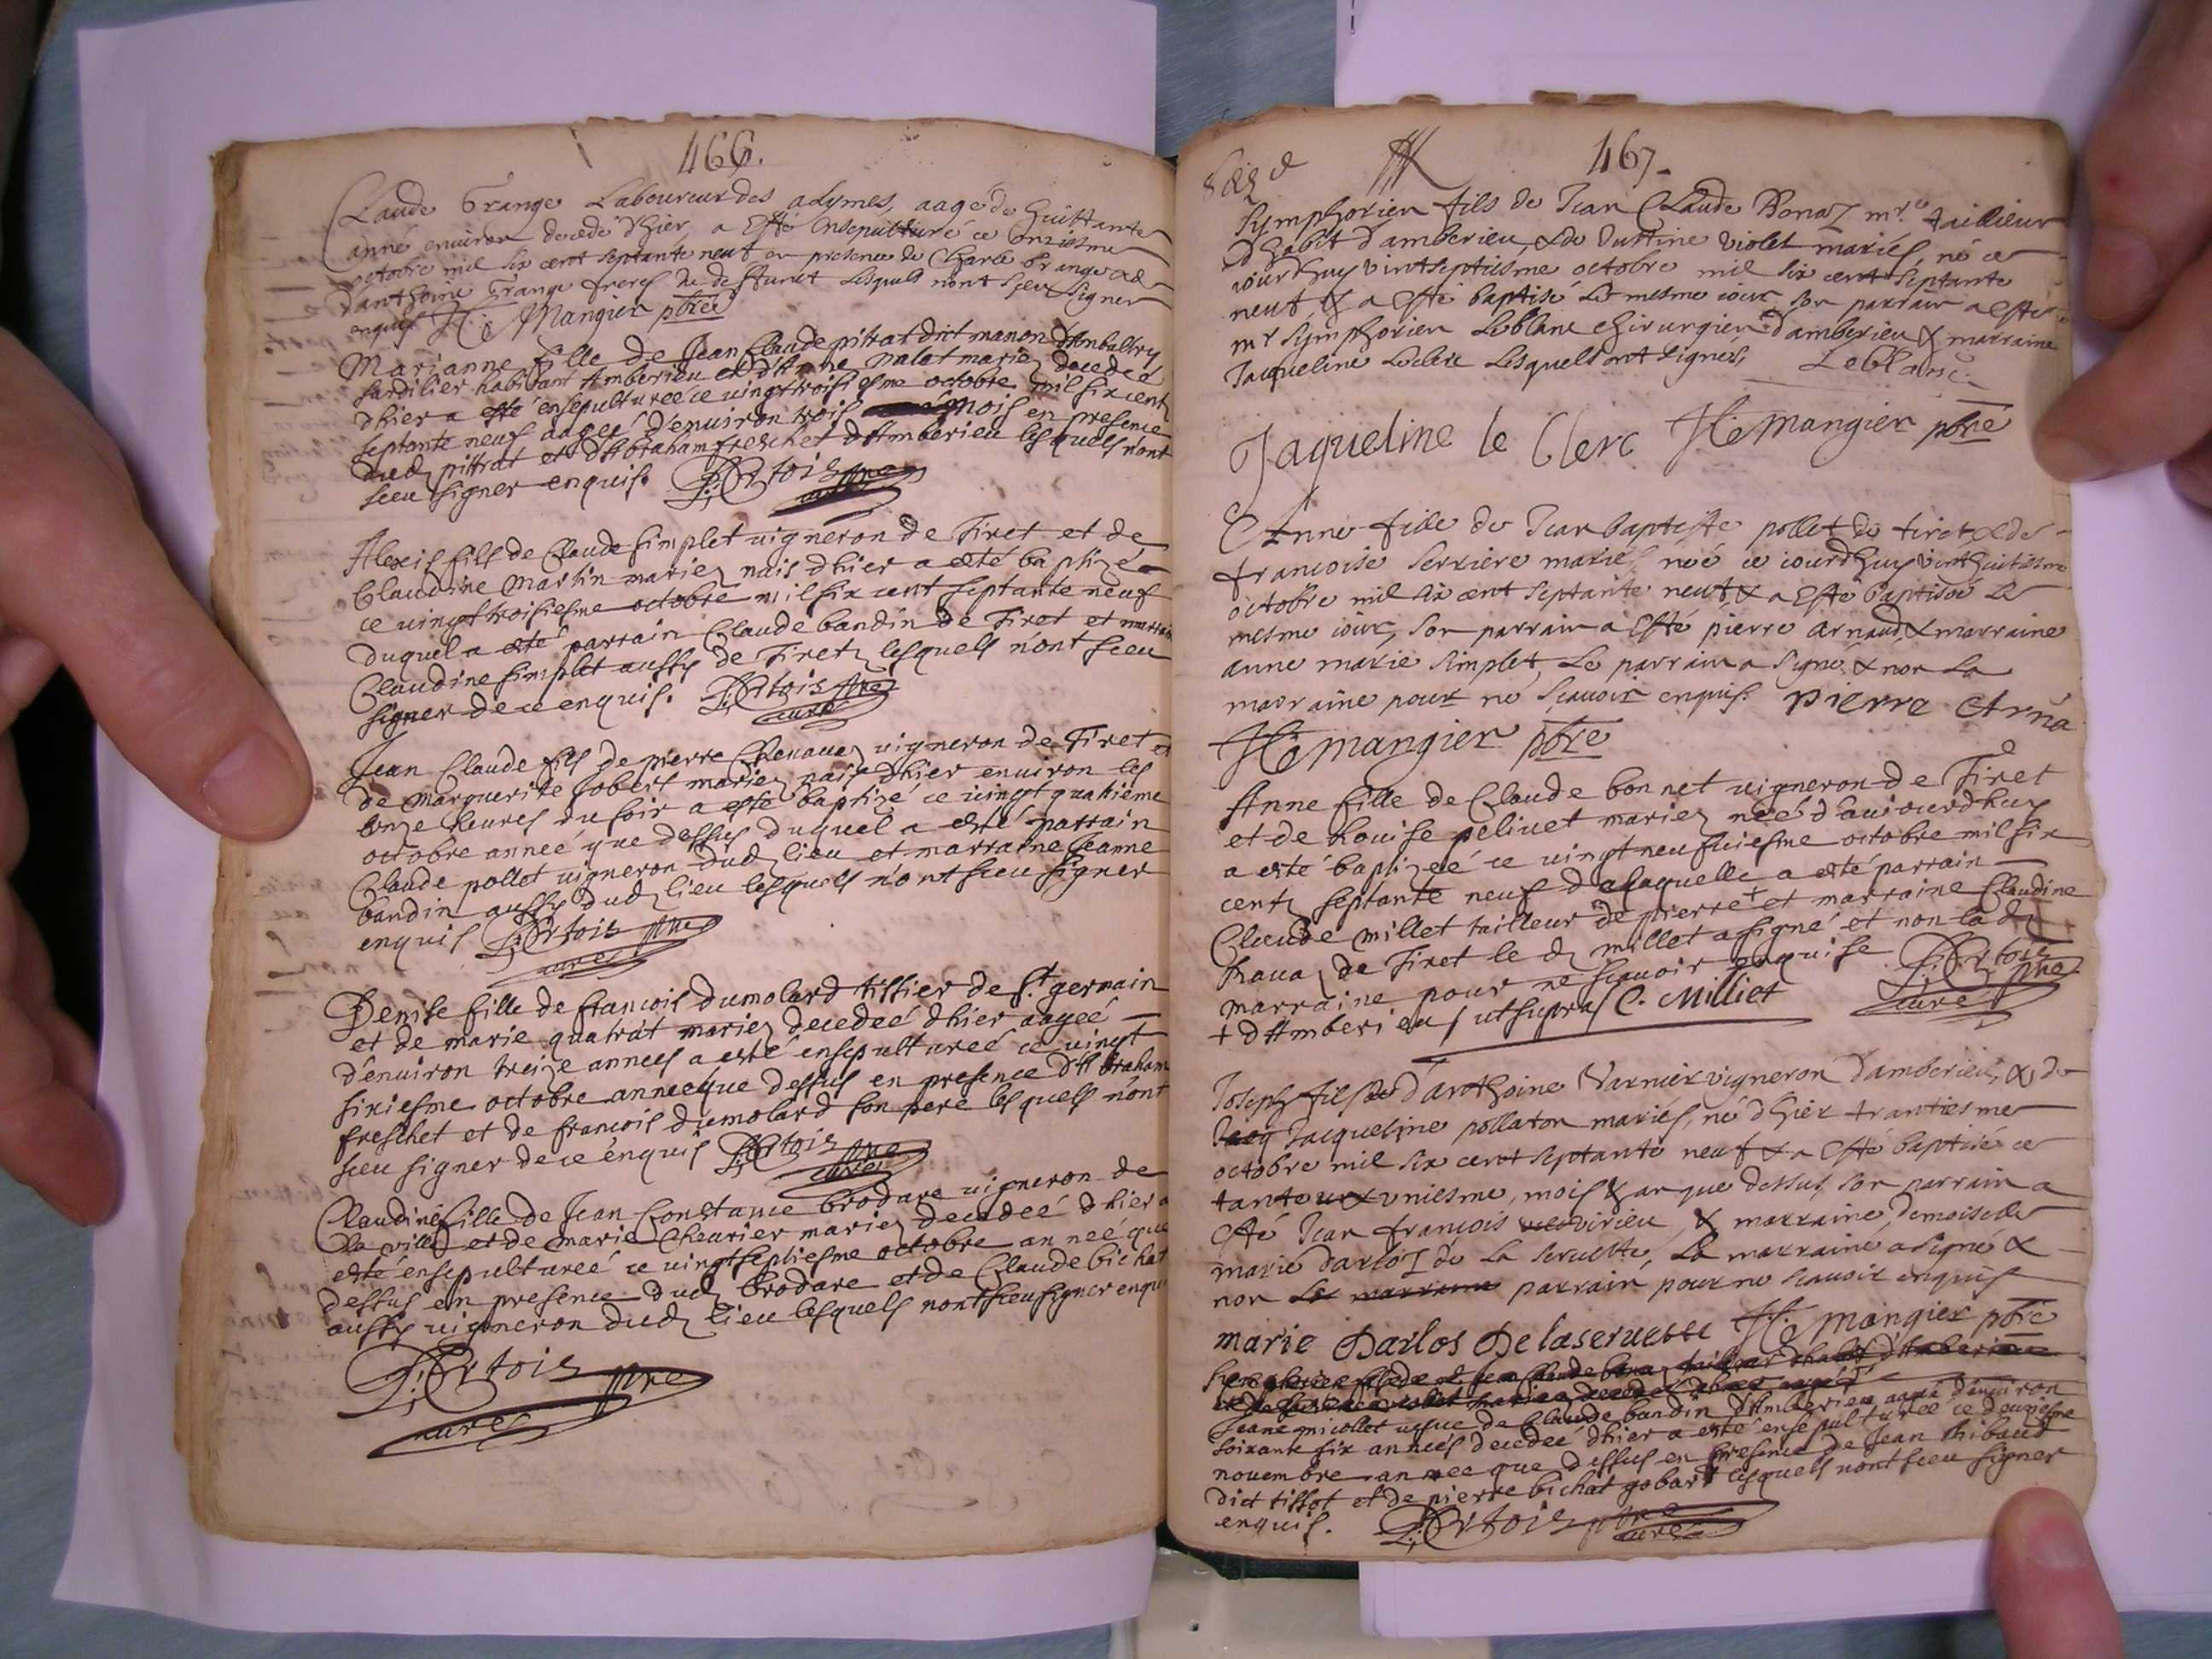 466.
Claude Grange Laboureur des alymes, aagé de huittante
anné environ decedé d'hier, a esté ensepulturé ce onziesme
octobre mil six cent septante neuf en presence de Charle Grange & d
d'anthoine Grange freres du deffunct lesquels n'ont sceu signer
enquis H: Mangier pbre
Marianne fille de Jean Claude pittrat dict manon d'Ambultry
habitant Amberieu et d'Anne malet mariez decedeé
dhier a esté ensepultureé ce vingt troisiesme octobre mil six centz
septante neuf aageé d'enuiron trois mois en presence
dudz pittrat et d'Abraham freschet d'Amberieu lesquels n'ont
sceu signer enquis. P: Ortois pbre
curé
Alexis fils de Claude simplet uigneron de Tiret et de
Claudine Martin mariez nais dhier a esté baptizé
ce uingt troisiesme octobre mil six cent septante neuf
duquel a esté parrain Claude bandin de Tiret et marrain
Claudine simplet aussy de Tiretz lesquels n'ont sceu
signer de ce enquis. P: Ortois pbre
curé
Jean Claude fils de pierre Chenauaz uigneron de Tiret et
de Marguerite Jobert mariez nais dhier enuiron les
onze heures du soir a esté baptizé ce uingt quatrieme
octobre anneé que dessus duquel a esté parrain
Claude pollet uigneron dudz lieu et marraine Jeanne
bandin aussy dudz lieu lesquels n'ont sceu signer
enquis P: Ortois pbre
curé
Denise fille de francois dumolard tissier de st germain
et de marie quatrat mariez decedeé dhier aageé
d'enuiron treize anneés a esté ensepultureé ce uingt
sixiesme octobre anneé que dessus en presence d'Abraham
freschet et de francois dumolard son pere lesquels n'ont
sceu signer de ce enquis P: Ortois pbre
curé
Claudine fille de Jean Constance brodare uigneron de
la uille et de marie Cheurier mariez decedeé dhier a
esté ensepultureé ce uingtseptiesme octobre anneé que
dessus en presence dudz brodare et de Claude bichat
aussy uigneron dudz lieu lesquels n'ont sceu signer enquis
P: Ortois pbre
curé
467.
Symphorien fils de Jean Claude Bonaz mre taillieur
d'habit d'amberieu & de Justine Violet mariés, né ce
iourdhuy vintseptiesme octobre mil six cent septante
neuf, & a esté baptisé le mesme iour son parrain a esté
mr Symphorien Leblanc chirurgien d'amberieu & marraine
Jacqueline Leclerc lesquels ont signés, Leblanc
Jaqueline le Clerc H: Mangier pbre
Anne fille de Jean baptiste pollet de tiret & de
francoise Serriere mariés, née ce iourdhuy vinthuitiesme
octobre mil six cent septante neuf & a esté baptisée le
mesme iour, son parrain a esté pierre arnaud, & marraine
anne marie simplet, le parrain a signé & non la
marraine pour ne scauoir enquis. pierre Arna
H: Mangier pbre
Anne fille de Claude bonnet uigneron de Tiret
et de Louise peliuet mariez neé d'auiourdhuy
a esté baptizeé ce uingt neufuiesme octobre mil six
centz septante neuf de laquelle a esté parrain
Claude millet tailleur de pierre + et marraine Claudine
Rauaz de Tiret le dz millet a signé et non la dz
marraine pour ne scauoir enquise P: Ortois
+ d'Amberieu / ut supra / C. Milliet pbre
curé
Joseph fils de d'anthoine Varnier vigneron d'amberieu, & de
Jacq Jacqueline pollaton mariés, né dhier trantiesme
octobre mil six cent septante neuf & a esté baptisé ce
tante un & uniesme, mois & an que dessus, son parrain a
esté Jean francois virieu, & marraine Demoiselle
marie darloz de la Seruette, la marraine a signé &
non le marraine parrain pour ne scauoir enquis
marie Darlos De laseruette H: Mangier pbre
Jeane micollet uefue de Claude bandin d'Amberieu aageé d'enuiron
soixante six anneés decedeé dhier a esté ensepultureé ce deuxiesme
nouembre anneé que dessus en presence de Jean thibaud
dict tissot et de pierre bichat gobart lesquels n'ont sceu signer
enquis. P: Ortois pbre
curé